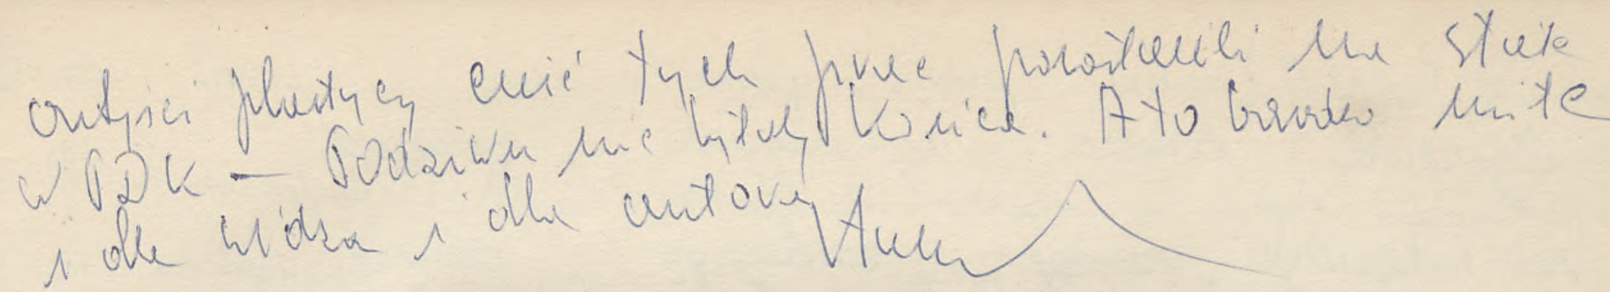 artyści plastycy część tych prac pozostawili na stałe
w PDK — Podziwu nie byłoby końca. A to bardzo miłe
i dla widza i dla autora